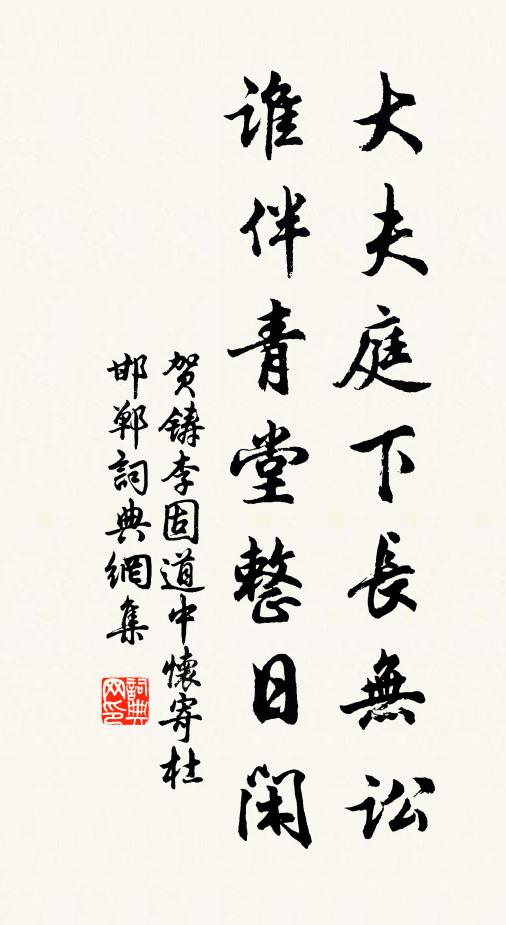 大夫庭下長無訟
誰伴青堂整日閑
贺鑄李固道中懷寄杜
邯鄲詞典網集
詞典网印